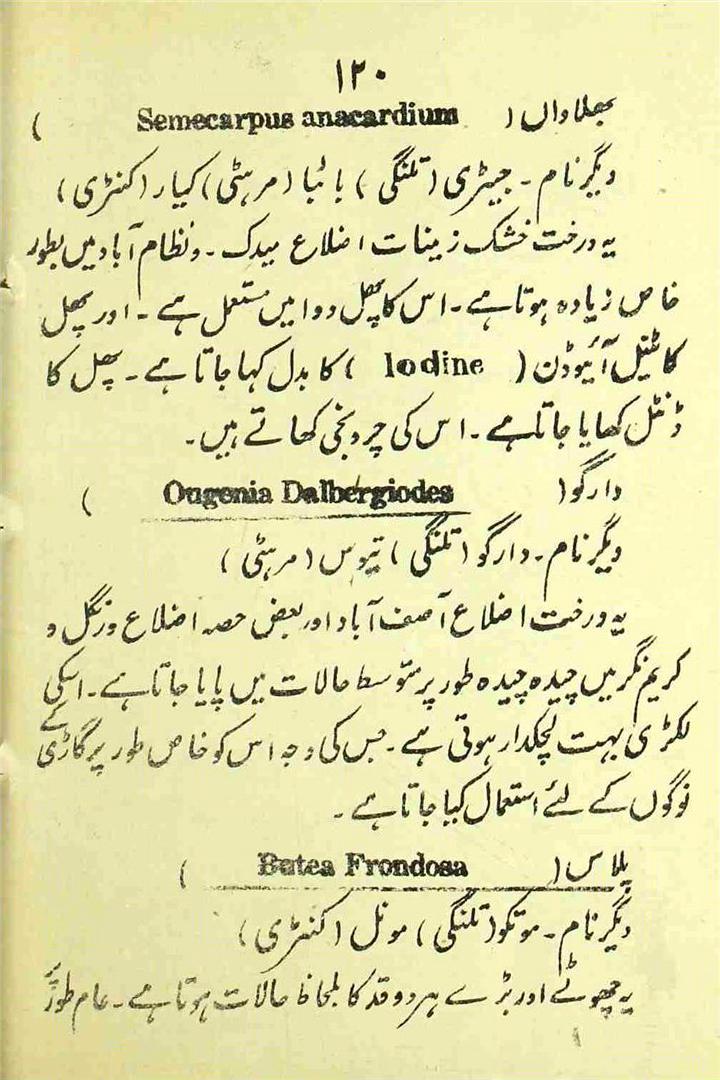 ۱۲۰
بھلاواں ( Semecarpus anacardium )
دیگر نام ۔ جیڑی (تلنگی) با بنا (مرہٹی) کیار (کنٹری)
یہ درخت خشک زینات اضلاع میدک ۔ ونظام آباد میں بطور
خاص زیادہ ہوتا ہے ۔ اس کا پھل دوا میں مستعمل ہے ۔ اور پھل
کا تیل آئیوڈن ( Iodine ) کا بدل کہا جاتا ہے ۔ پھل کا
ڈنٹل کھایا جاتا ہے ۔ اس کی چرونجی کھاتے ہیں ۔
دارگو ( Ougenia Dalbergiodes )
دیگر نام ۔ دارگو (تلنگی) تیوس (مرہٹی)
یہ درخت اضلاع آصف آباد اور بعض حصہ اضلاع ورنگل و
کریم نگر میں چیدہ چیدہ طور پر متوسط حالات میں پایا جاتا ہے ۔ اسکی
لکڑی بہت لچکدار ہوتی ہے ۔ جس کی وجہ اس کو خاص طور پر گاڑی کے
نوگوں کے لئے استعمال کیا جاتا ہے ۔
پلاس ( Butea Frondosa )
دیگر نام ۔ موتکو (تلنگی) مونل (کنٹری)
یہ چھوٹے اور بڑے ہر دو قد کا بلحاظ حالات ہوتا ہے ۔ عام طور پر